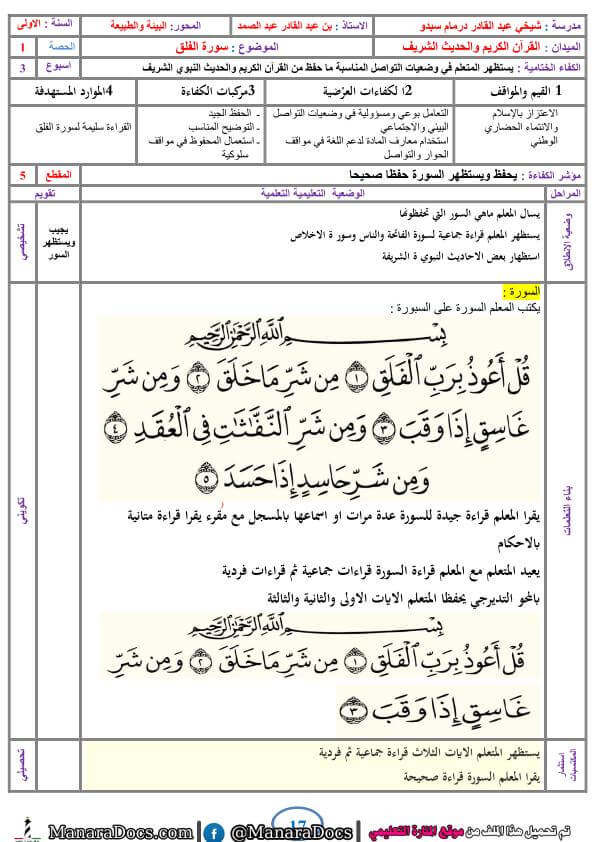 مدرسة : شيخي عبد القادر درمام سبدو الاستاذ : بن عبد القادر عبد الصمد المحور: البيئة والطبيعة السنة : الاولى
الميدان : القرآن الكريم والحديث الشريف الموضوع : سورة الفلق الحصة 1
الكفاءة الختامية : يستظهر المتعلم في وضعيات التواصل المناسبة ما حفظ من القرآن الكريم والحديث النبوي الشريف اسبوع 3
1 القيم والمواقف 2ا لكفاءات العرْضية 3مركبات الكفاءة 4الموارد المستهدفة
الاعتزاز بالإسلام
والانتماء الحضاري
الوطني
التعامل بوعي ومسؤولية في وضعيات التواصل
البيني والاجتماعي
استخدام معارف المادة لدعم اللغة في مواقف
الحوار والتواصل
ـ الحفظ الجيد
ـ التوضيح المناسب
ـ استعمال المحفوظ في مواقف
سلوكية
القراءة سليمة لسورة الفلق
مؤشر الكفاءة : يحفظ ويستظهر السورة حفظا صحيحا المقطع 5
المراحل الوضعية التعليمية التعلمية تقويم
وضعية الانطلاق
يسال المعلم ماهي السور التي تحفظونها
يستظهر المعلم قراءة جماعية لسورة الفاتحة والناس وسور ة الاخلاص
استظهار بعض الاحاديث النبوي ة الشريفة
يجيب
ويستظهر
السور
تشخيصي
بناء التعلمات
السورة :
يكتب المعلم السورة على السبورة :
بِسْمِ اللَّهِ الرَّحْمَٰنِ الرَّحِيمِ
قُلْ أَعُوذُ بِرَبِّ الْفَلَقِ ١ مِن شَرِّ مَا خَلَقَ ٢ وَمِن شَرِّ
غَاسِقٍ إِذَا وَقَبَ ٣ وَمِن شَرِّ النَّفَّٰثَٰتِ فِي الْعُقَدِ ٤
وَمِن شَرِّ حَاسِدٍ إِذَا حَسَدَ ٥
يقرا المعلم قراءة جيدة للسورة عدة مرات او اسماعها بالمسجل مع مقرء يقرا قراءة متانية
بالاحكام
يعيد المتعلم مع المعلم قراءة السورة قراءات جماعية ثم قراءات فردية
بالمحو التدريجي يحفظا المتعلم الايات الاولى والثانية والثالثة
بِسْمِ اللَّهِ الرَّحْمَٰنِ الرَّحِيمِ
قُلْ أَعُوذُ بِرَبِّ الْفَلَقِ ١ مِن شَرِّ مَا خَلَقَ ٢ وَمِن شَرِّ
غَاسِقٍ إِذَا وَقَبَ ٣
تكويني
استثمار
المكتسبات
يستظهر المتعلم الايات الثلاث قراءة جماعية ثم فردية
يقرا المعلم السورة قراءة صحيحة
تحصيلي
17
تم تحميل هذا الملف من موقع المنارة التعليمي @ManaraDocs ManaraDocs.com